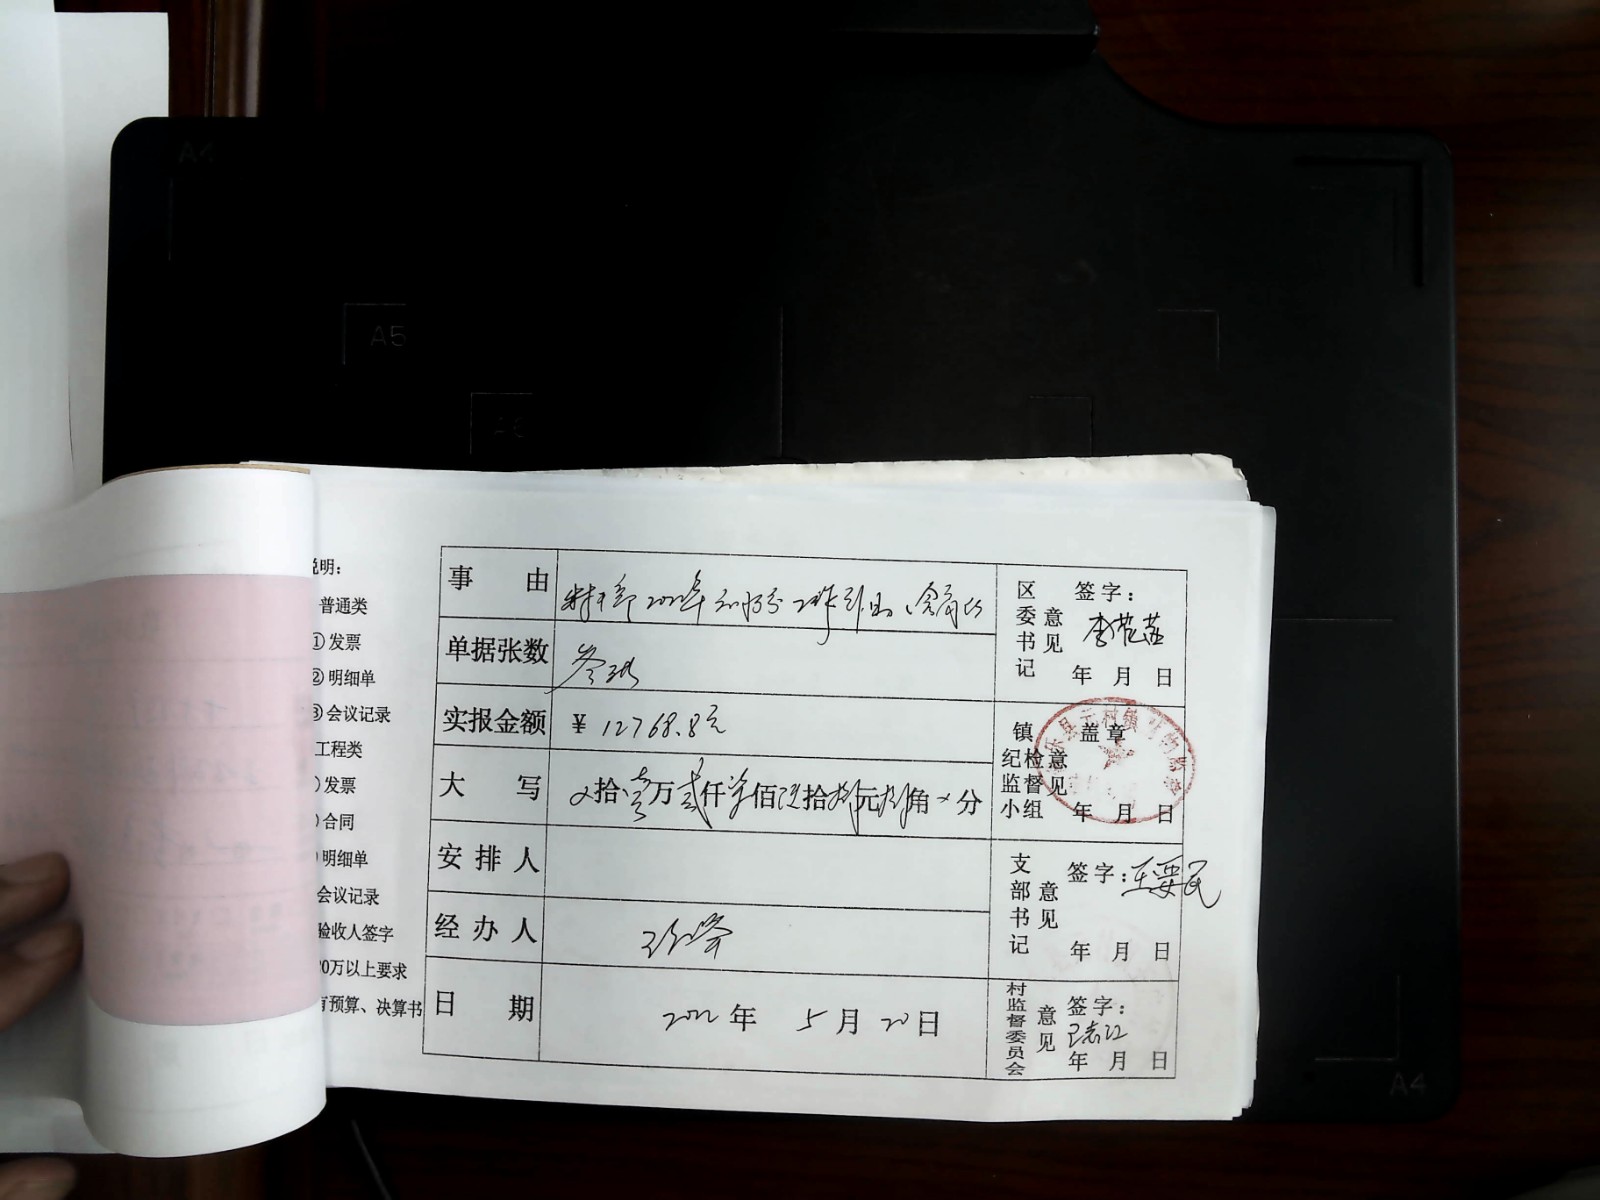 A4
A5
A6
说明:
普通类
①发票
②明细单
③会议记录
工程类
)发票
)合同
)明细单
会议记录
验收人签字
0万以上要求
有预算、决算书
事由
单据张数 叁张
实报金额 ¥ 12768.8元
大写 ×拾壹万贰仟柒佰陆拾捌元捌角×分
安排人
经办人
日期 2022年 5月 20日
区委书记意见 签字:
年 月 日
镇纪检监督小组意见 盖章
年 月 日
支部书记意见 签字:王要民
年 月 日
村监督委员会意见 签字:
年 月 日
A4